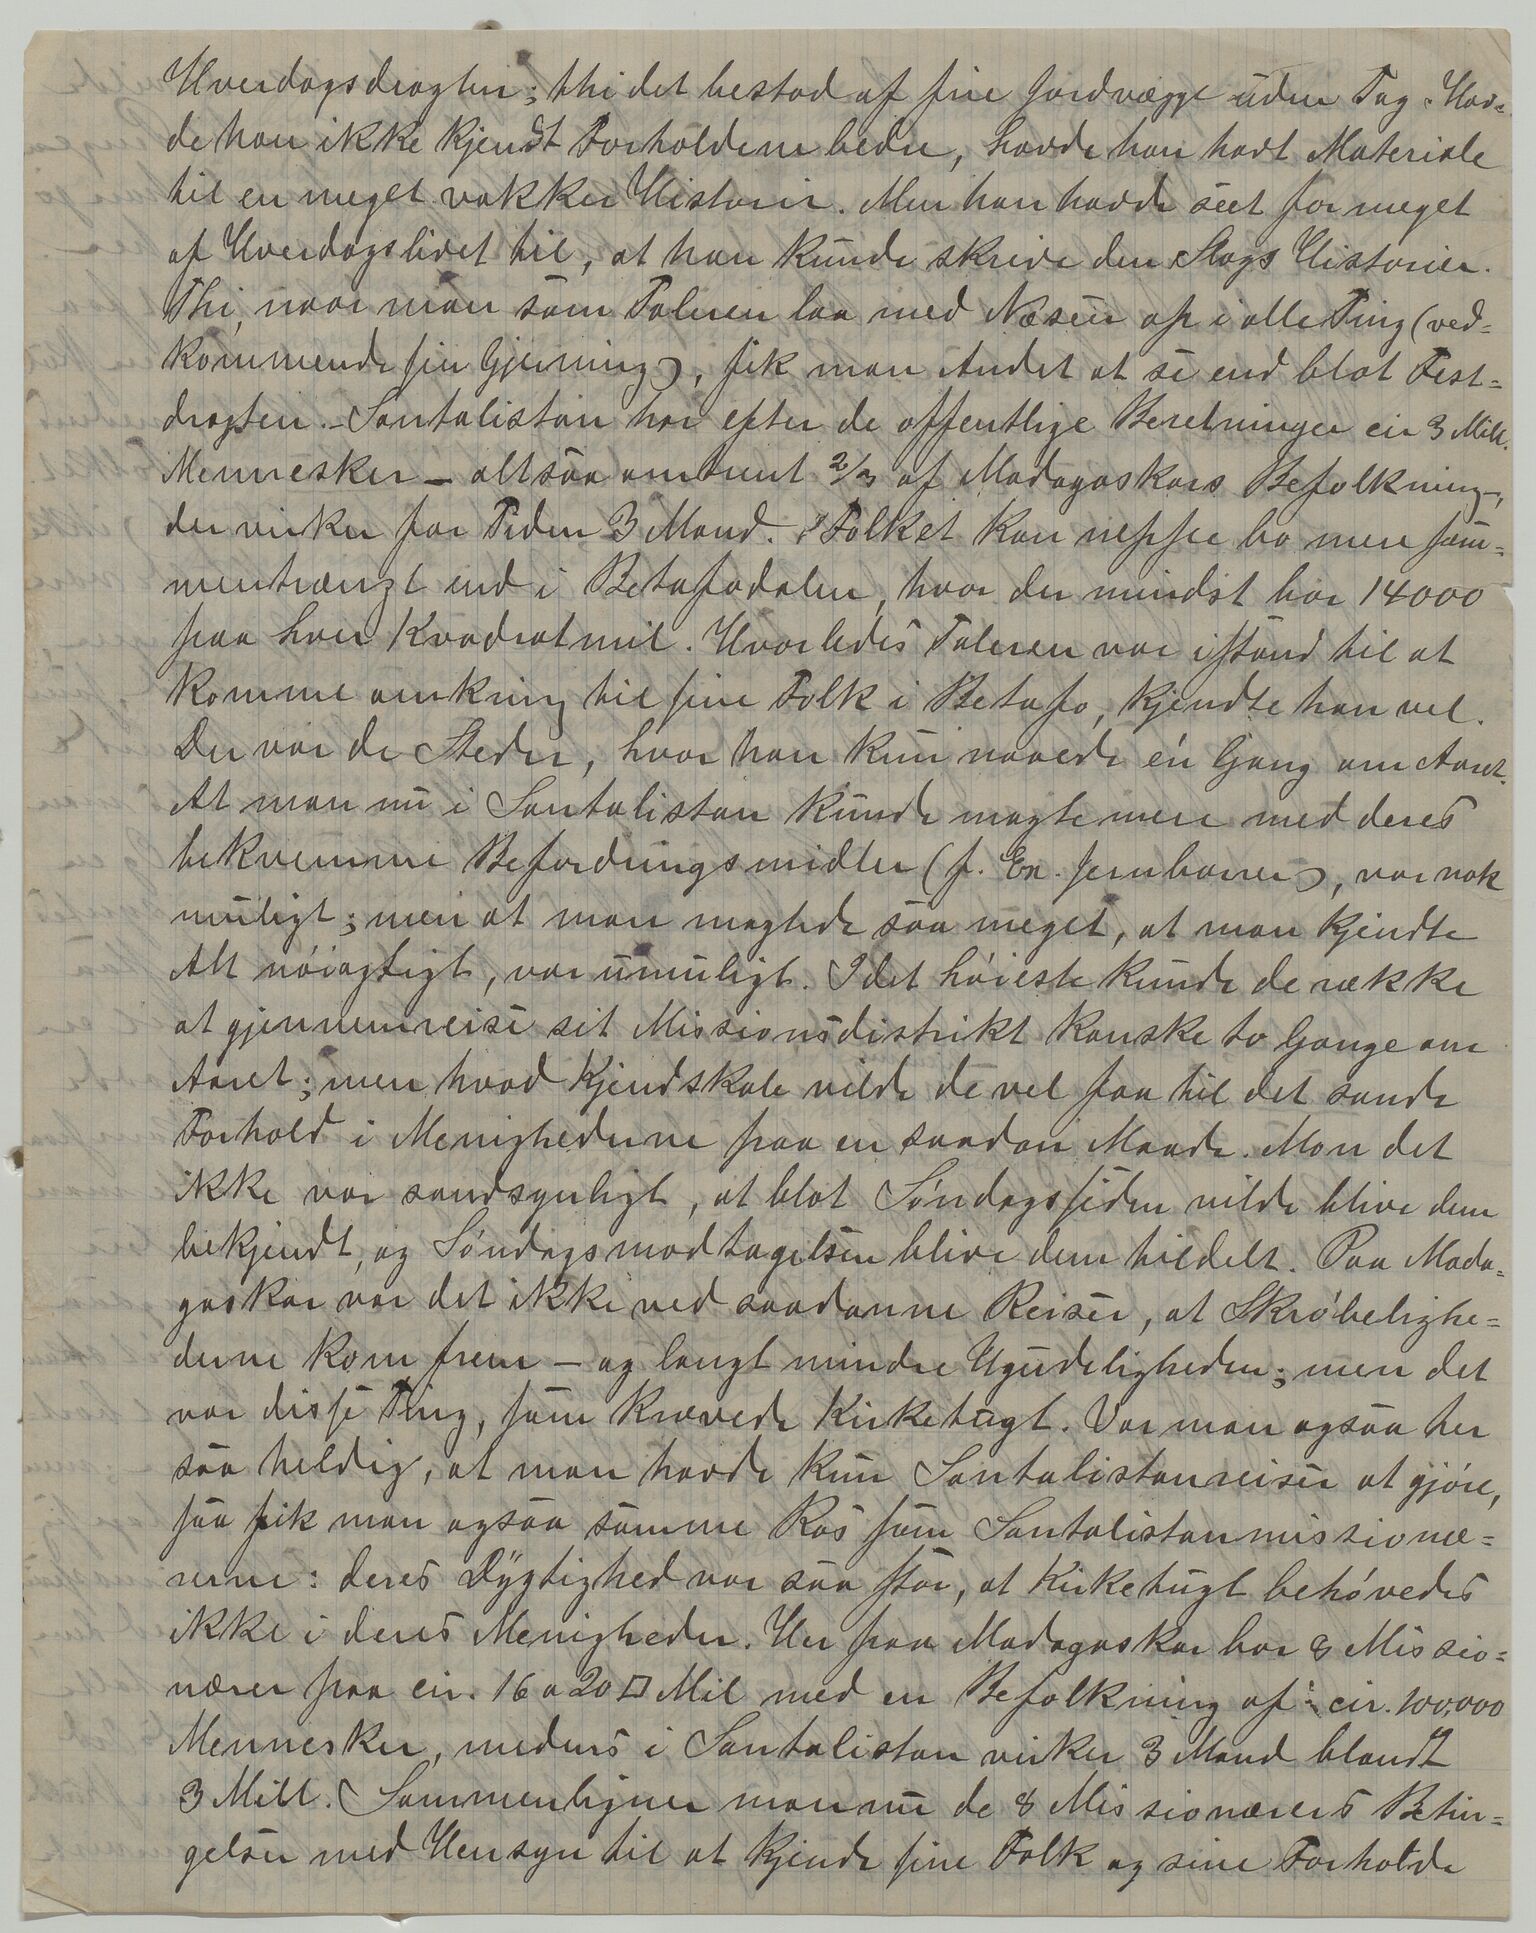 Hverdagsdragten; thi det bestod af fire Jordvægge uden Tag. Hav-
de han ikke kjendt Forholdene bedre, havde han havt Materiale
til en meget vakker Historie. Men han havde seet for meget
af Hverdagslivet til, at han kunde skrive den Slags Historier.
Thi, naar man som Taleren laa med Næsen op i alle Ting (ved-
kommende sin Gjerning), fik man Andet at se end blot Fest-
dragten. – Santalistan har efter de offentlige Beretninger cir 3 Mill.
Mennesker – altsaa omtrent 2/3 af Madagaskars Befolkning –,
der virker for Tiden 3 Mand. Folket kan neppe bo mere sam-
mentrængt end i Betafodalen, hvor der mindst bor 14000
paa hver Kvadratmil. Hvorledes Taleren var istand til at
komme omkring til sine Folk i Betafo, kjendte han vel.
Der var de Steder, hvor han kun naaede én Gang om Aaret.
At man nu i Santalistan kunde magte mere med deres
bekvemme Befordringsmidler (f. Ex. Jernbaner), var nok
muligt; men at man magtede saa meget, at man kjendte
Alt nöiagtigt, var umuligt. I det höieste kunde de række
at gjennemreise sit Missionsdistrikt kanske to Gange om
Aaret; men hvad Kjendskab vilde de vel faa til det sande
Forhold i Menighederne paa en saadan Maade. Mon det
ikke var sandsynligt, at blot Söndagssiden vilde blive dem
bekjendt, og Söndagsmodtagelsen blive dem tildelt. Paa Mada-
gaskar var det ikke ved saadanne Reiser, at Skröbelighe-
derne kom frem – og langt mindre Ugudeligheden; men det
var disse Ting, som krævede Kirketugt. Var man ogsaa her
saa heldig, at man havde kun Santalistanreiser at gjöre,
saa fik man ogsaa samme Ros som Santalistanmissionæ-
rerne: deres Dygtighed var saa stor, at Kirketugt behövedes
ikke i deres Menigheder. Her paa Madagaskar bor 8 Missio-
nærer paa cir. 16 a 20 □ Mil med en Befolkning af cir. 100,000
Mennesker, medens i Santalistan virker 3 Mand blandt
3 Mill. Sammenligner man nu de 8 Missionærers Betin-
gelser med Hensyn til at kjende sine Folk og sine Forholde